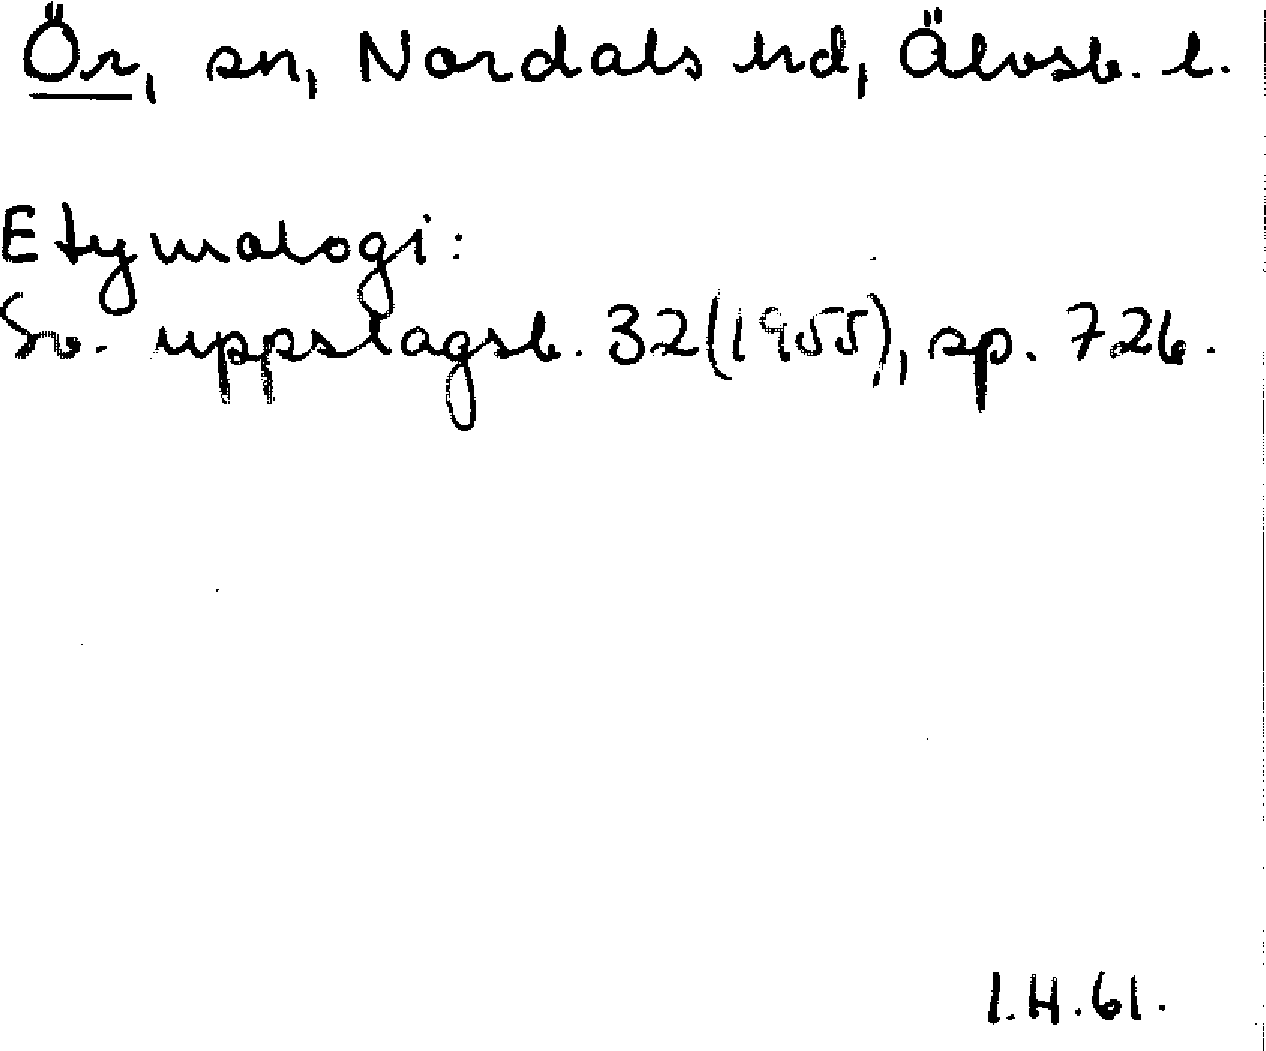 Ör, sn, Nordals hd, Älvsb. l.
Etymologi:
Sv. uppslagsb. 32 (1955), sp. 726.
I.H.61.